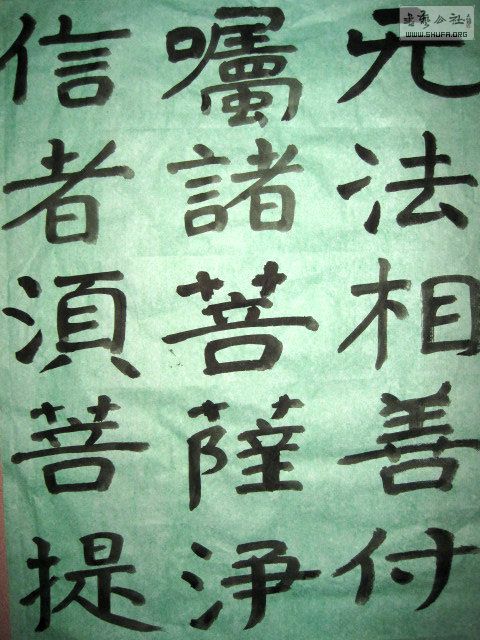 无法相善付
囑諸菩薩淨
信者湏菩提
書藝公社
WWW.SHUFA.ORG